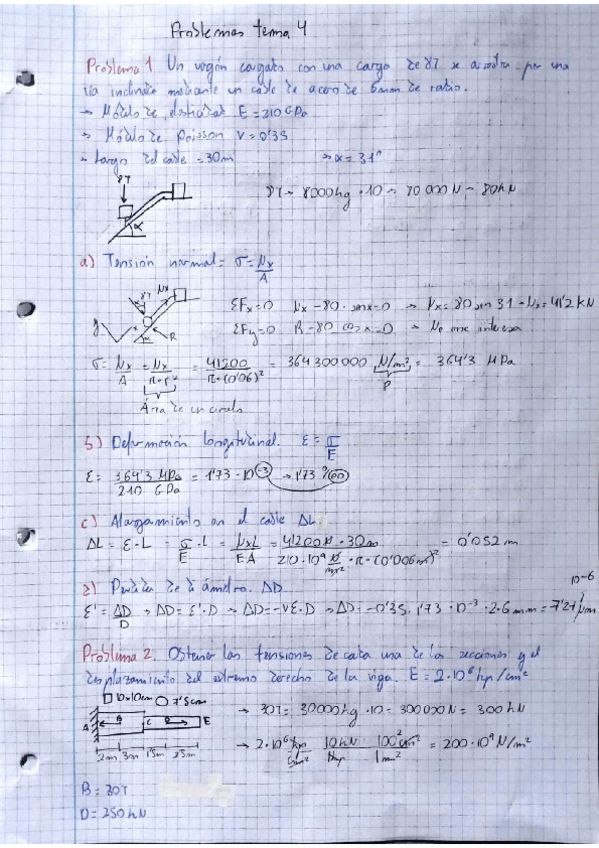 Problemas tema 4
Problema 1 Un vagón cargado con una carga de 8T se por una
vía inclinada mediante un cable de acero de 6mm de radio.
→ Módulo de elasticidad E = 210 GPa
→ Módulo de poisson V = 0'35
→ Largo del cable = 30m → α = 31°
8T
α
8T → 8000 kg · 10 = 80 000 N = 80kN
a) Tensión normal = σ = Nx/A
8T Nx
y α R
ΣFx=0 Nx - 80 · senα = 0 → Nx = 80 sen 31 → Nx = 41'2 kN
ΣFy=0 R - 80 cosα = 0 → No me interesa
σ = Nx/A = Nx/π·r² = 41200/π·(0'06)² = 364 300 000 N/m² = 364'3 MPa
P
Área de un circulo
b) Deformación longitudinal. ε = σ/E
ε = 364'3 MPa/210 GPa = 1'73 · 10⁻³ → 1'73 ‰
c) Alargamiento en el cable ΔL.
ΔL = ε · L = σ/E · L = Nx·L/E·A = 41200 N · 30m/210·10⁹ N/m² · π·(0'006m)² = 0'052 m
d) Perdida de diámetro. ΔD
10⁻⁶
ε' = ΔD/D → ΔD = ε' · D → ΔD = -Vε · D → ΔD = -0'35 · 1'73 · 10⁻³ · 2·6 mm = 7'27 μm
Problema 2. Obtener las tensiones de cada una de las secciones y el
desplazamiento del extremo derecho de la viga. E = 2·10⁶ kp/cm²
□ 10x10cm ○ 7'5cm
A B C D E
2m 3m 1'5m 2'5m
→ 30T = 30000kg · 10 = 300000N = 300 kN
→ 2·10⁶ kp/cm² 10N/1kp 100²cm²/1m² = 200·10⁹ N/m²
B = 30T
D = 250kN